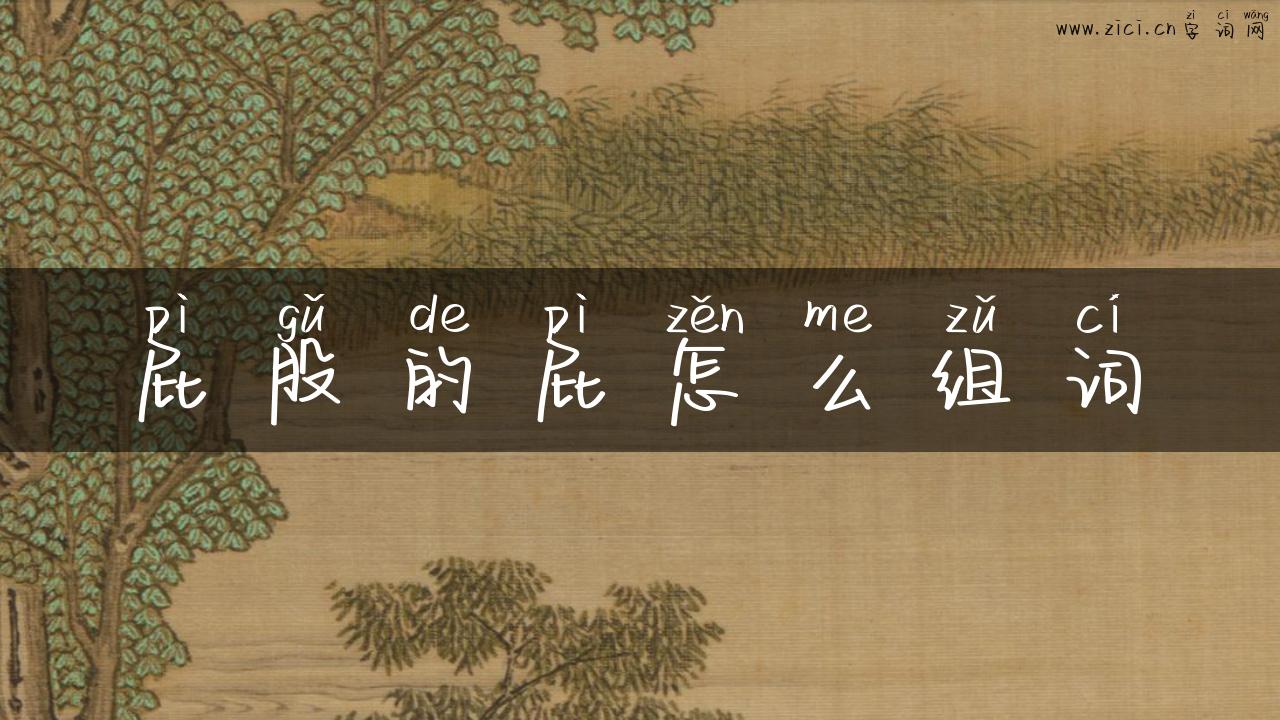 zì cí wǎng
www.zici.cn字词网
pì gǔ de pì zěn me zǔ cí
屁股的屁怎么组词